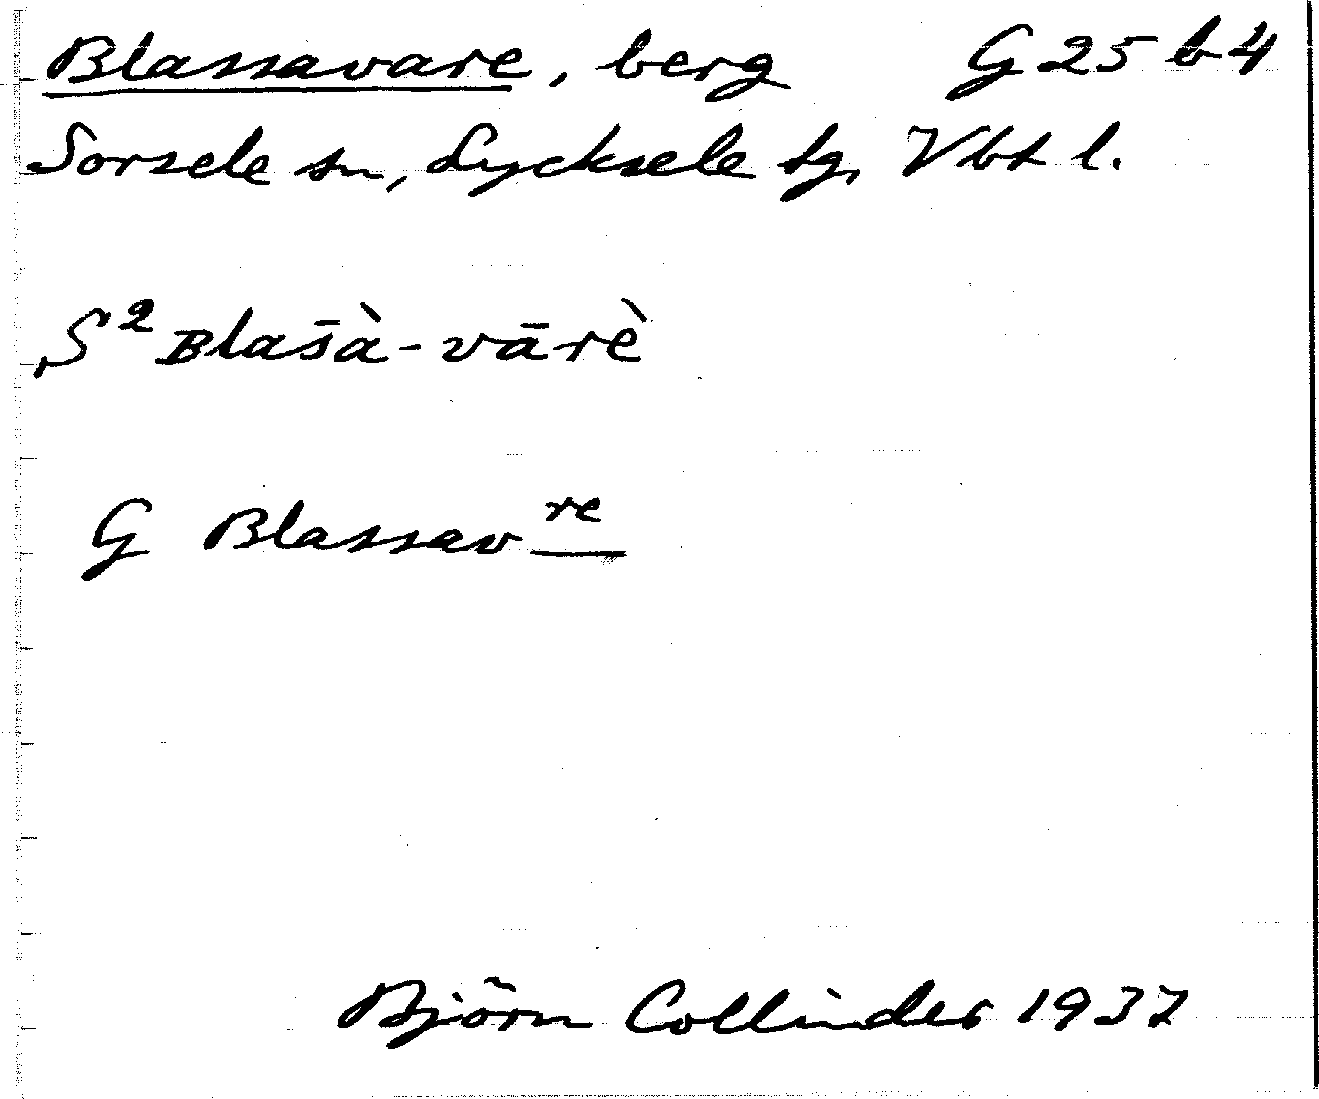 Blassavare, berg G 25 b 4
Sorsele sn, Lycksele tg, Vbt l.
S² Blas̄à-vārè
G Blassav re
Björn Collinder 1937